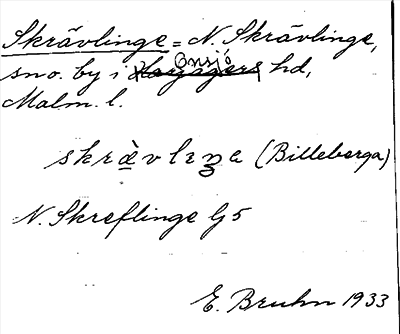 Skrävlinge = N. Skrävlinge,
sno. by i Harjagers Onsjö hd,
Malm. l.
skrævlɩŋe (Billeberga)
N. Skreflinge G5
E. Bruhn 1933